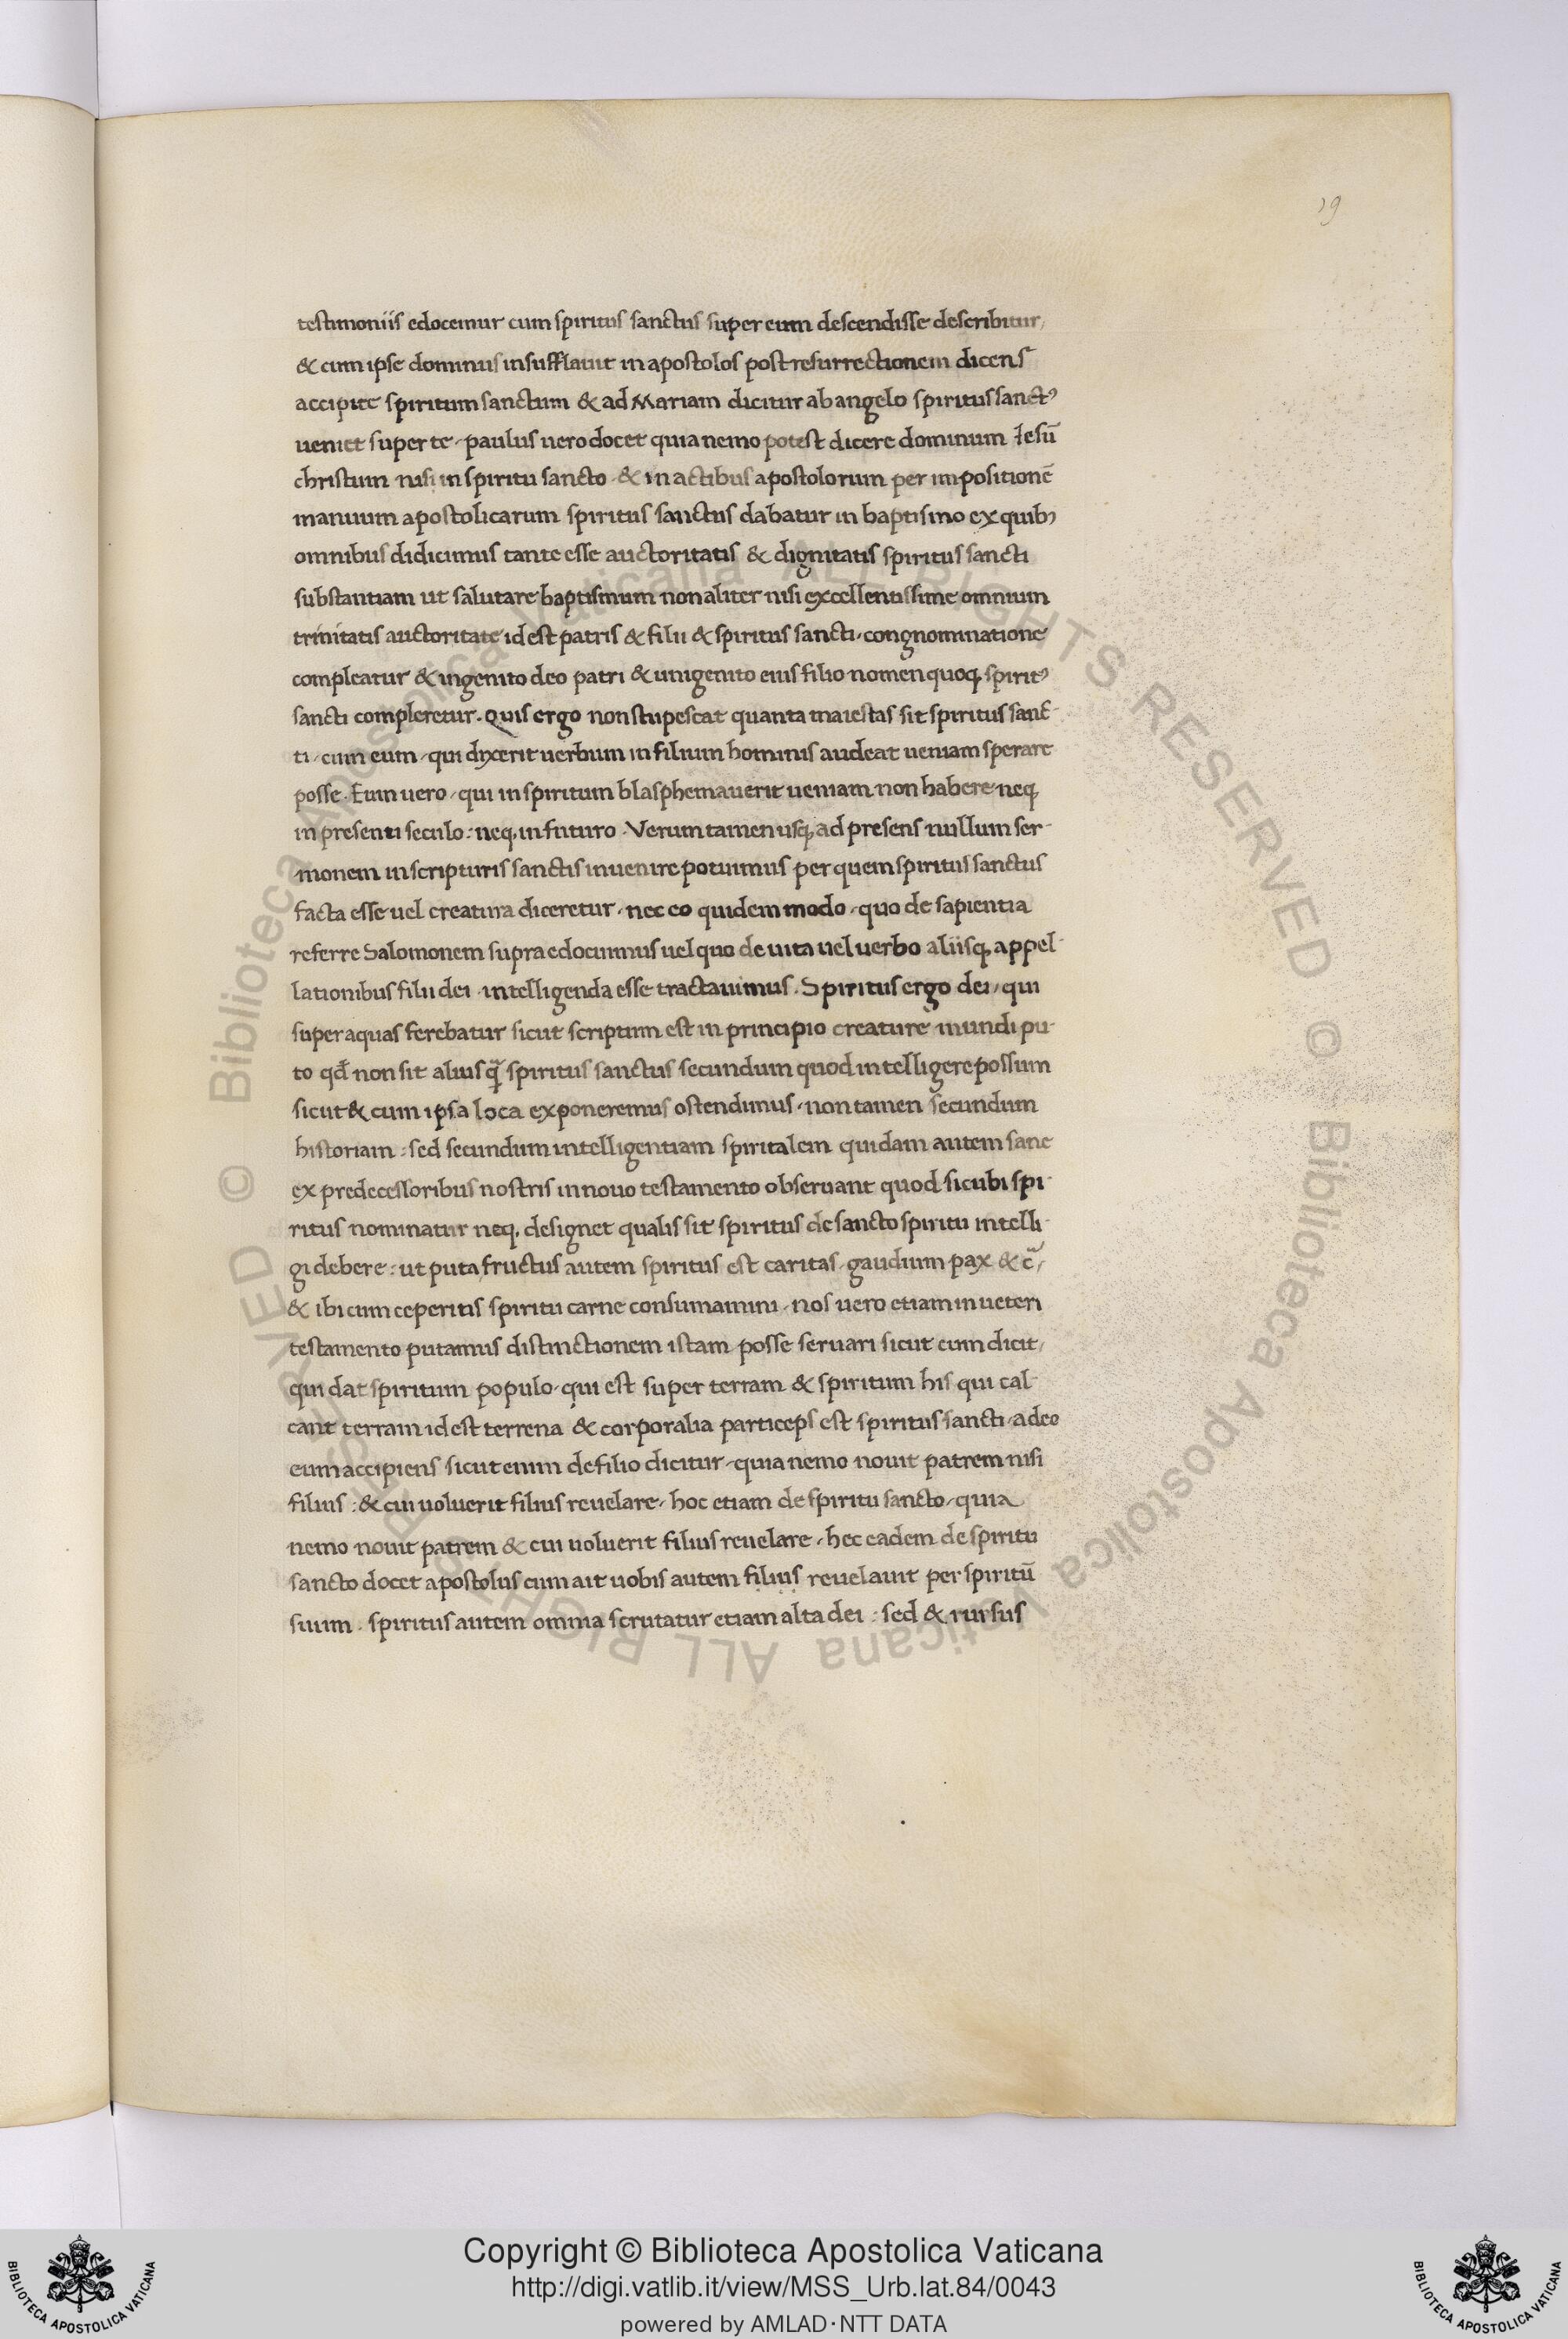 19
testimoniis edocemur cum spiritus sanctus super eum descendisse describitur,
& cum ipse dominus insufflauit in apostolos post resurrectionem dicens
accipite spiritum sanctum & ad Mariam dicitur ab angelo spiritus sanctꝰ
ueniet super te, paulus uero docet quia nemo potest dicere dominum Iesū
christum nisi in spiritu sancto & in actibus apostolorum per impositionē
manuum apostolicarum spiritus sanctus dabatur in baptismo ex quibꝰ
omnibus didicimus tante esse auctoritatis & dignitatis spiritus sancti
substantiam ut salutare baptismum non aliter nisi excellentissime omnium
trinitatis auctoritate id est patris & filii & spiritus sancti, congnominatione
compleatur & ingenito deo patri & unigenito eius filio nomen quoq, spiritꝰ
sancti compleretur. Quis ergo non stupescat quanta maiestas sit spiritus sanc-
ti, cum eum, qui dixerit uerbum in filium hominis audeat ueniam sperare
posse. Eum uero, qui in spiritum blasphemauerit ueniam non habere neq,
in presenti seculo: neq, in futuro. Verum tamen usq, ad presens nullum ser-
monem in scripturis sanctis inuenire potuimus per quem spiritus sanctus
facta esse uel creatura diceretur, nec eo quidem modo, quo de sapientia
referre Salomonem supra edocuimus uel quo de uita uel uerbo aliisq, appel-
lationibus filii dei intelligenda esse tractauimus. Spiritus ergo dei, qui
super aquas ferebatur sicut scriptum est in principio creature mundi pu-
to qđ non sit alius q̃ spiritus sanctus secundum quod intelligere possum
sicut & cum ipsa loca exponeremus ostendimus, non tamen secundum
historiam: sed secundum intelligentiam spiritalem quidam autem sane
ex predecessoribus nostris in nouo testamento obseruant quod sicubi spi-
ritus nominatur neq, designet qualis sit spiritus de sancto spiritu intelli-
gi debere: ut puta fructus autem spiritus est caritas, gaudium pax & c̃,
& ibi cum ceperitis spiritu carne consumamini, nos uero etiam in ueteri
testamento putamus distinctionem istam posse seruari sicut cum dicit,
qui dat spiritum populo, qui est super terram & spiritum his qui cal-
cant terram id est terrena & corporalia particeps est spiritus sancti, a deo
eum accipiens sicut enim de filio dicitur, quia nemo nouit patrem nisi
filius: & cui uoluerit filius reuelare, hoc etiam de spiritu sancto, quia
nemo nouit patrem & cui uoluerit filius reuelare, hec eadem de spiritu
sancto docet apostolus cum ait uobis autem filius reuelauit per spiritū
suum. spiritus autem omnia scrutatur etiam alta dei: sed & rursus
© Biblioteca Apostolica Vaticana ALL RIGHTS RESERVED © Biblioteca Apostolica Vaticana ALL RIGHTS RESERVED
Copyright © Biblioteca Apostolica Vaticana
http://digi.vatlib.it/view/MSS_Urb.lat.84/0043
powered by AMLAD·NTT DATA
BIBLIOTECA APOSTOLICA VATICANA
BIBLIOTECA APOSTOLICA VATICANA